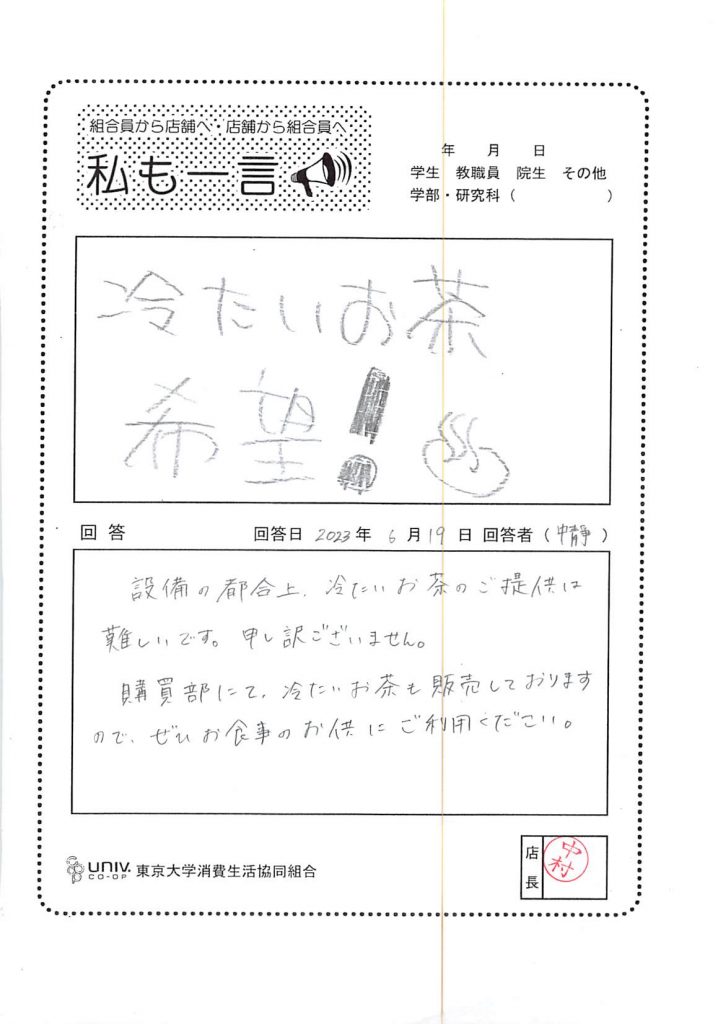 組合員から店舗へ・店舗から組合員へ
私も一言
年 月 日
学生 教職員 院生 その他
学部・研究科( )
冷たいお茶
希望!
回答 回答日 2023年 6月19日 回答者(中靜)
設備の都合上、冷たいお茶のご提供は
難しいです。申し訳ございません。
購買部にて、冷たいお茶も販売しております
ので、ぜひお食事のお供にご利用ください。
UNIV.
CO-OP
東京大学消費生活協同組合
店長
中村